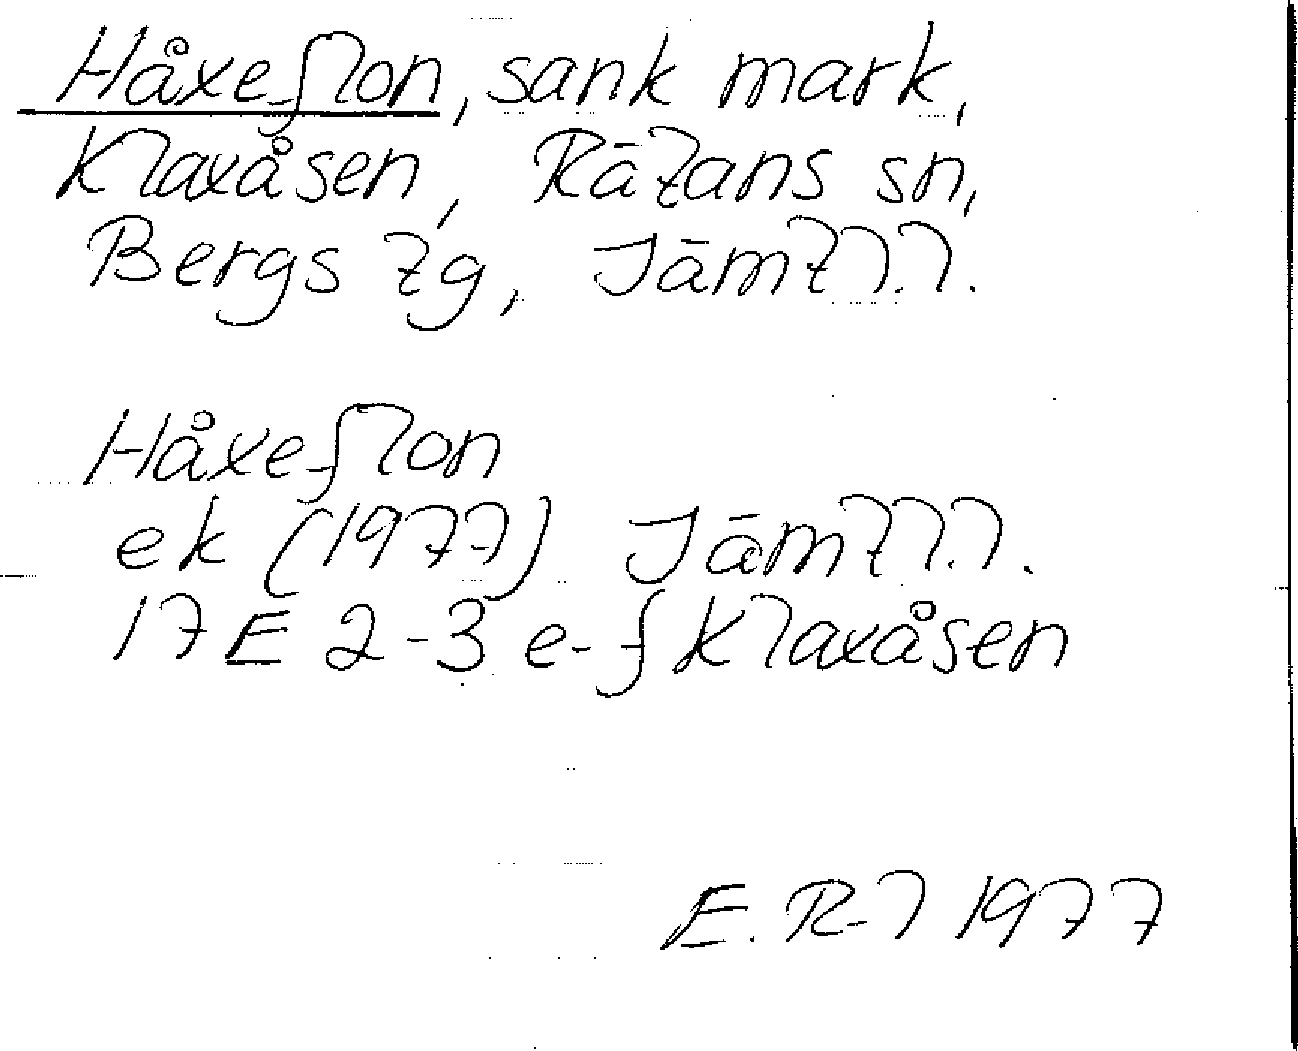 Håxeflon, sank mark,
Klaxåsen, Rätans sn,
Bergs tg, Jämtl.l.
Håxeflon
ek (1977) Jämtl.l.
17E 2-3 e-f Klaxåsen
E. R-l 1977